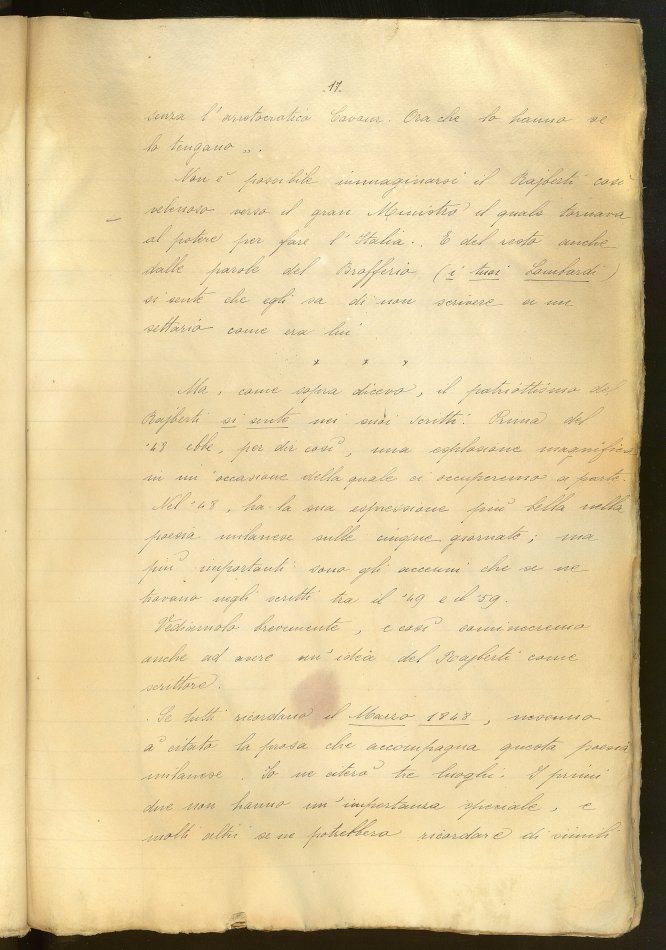 .17.
senza l'aristocratico Cavour. Ora che lo hanno se
lo tengano „.
Non è possibile immaginarsi il Rajberti così
velenoso verso il gran Ministro il quale tornava
al potere per fare l'Italia. E del resto anche
dalle parole del Brofferio (i tuoi Lombardi)
si sente che egli sa di non scrivere a un
settario come era lui
* * *
Ma, come sopra dicevo, il patriottismo del
Rajberti si sente nei suoi scritti. Prima del
'48 ebbe, per dir così, una esplosione magnifica
in un'occasione della quale ci occuperemo a parte.
Nel '48, ha la sua espressione più bella nella
poesia milanese sulle cinque giornate; ma
più importanti sono gli accenni che se ne
trovano negli scritti tra il '49 e il '59.
Vediamolo brevemente, e così cominceremo
anche ad avere un'idea del Rajberti come
scrittore.
Se tutti ricordano il Marzo 1848, nessuno
à citato la prosa che accompagna questa poesia
milanese. Io ne citerò tre luoghi. I primi
due non hanno un'importanza speciale, e
molti altri se ne potrebbero ricordare di simili